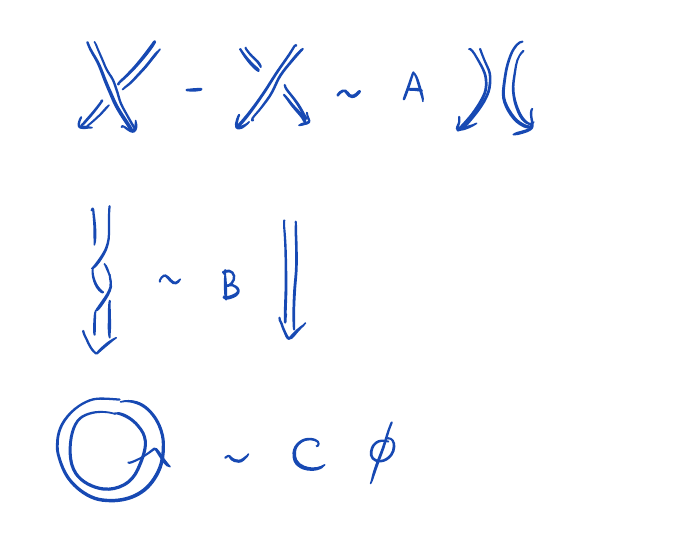 - ~ A
~ B
~ C ϕ